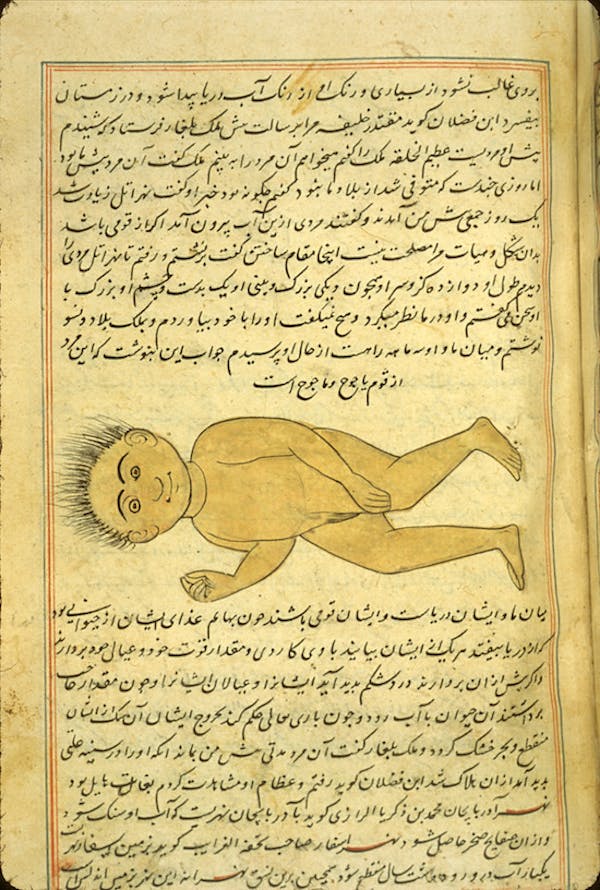 بروی غالب نشود از بسیاری و رنک او از رنک آب دریا پیدا شود و در زمستان
بیفسرد ابن فضلان کوید مقتدر خلیفه مرا برسالت پیش ملک بلغار فرستاد که شنیدم
پیش او مردیست عظیم الخلقه ملک را کفتم میخواهم آن مرد را به بینم ملک کفت آن مرد پیش ما بود
اما روزی چندست که متوفی شد از بلاد ما نبود کفتم چکونه بود خبر او کفت نهر اتل زیاد شد
یک روز جمعی پیش من آمدند و کفتند مردی ازین آب بیرون آمد اکر از قومی باشد
بدان شکل و هیات مرا مصلحت نیست اینجا مقام ساختن کفت برنشستم و رفتم تا نهر اتل مردی را
دیدم طول او دوازده کز و سر او همچون دیکی بزرک و بینی او یک بدست و چشم او بزرک با
او سخن می کفتم و او در ما نظر میکرد و هیچ نمیکفت او را با خود بیاوردم و بملک بلاد ویسو
نوشتم و میان ما و او سه ماهه راهست از حال او پرسیدم جواب این بنوشت که این مرد
از قوم یاجوج و ماجوج است
میان ما و ایشان دریاست و ایشان قومی باشند چون بهایم غذای ایشان از حیوانی بود
که از دریا بیفتد هر یک از ایشان بیایند با وی کاردی و مقدار قوت خود و عیال خود بردارند
و اکر بیش از آن بردارند درد شکم پدید آید ایشانرا و عیالان ایشانرا و چون مقدار حاجت
برداشتند آن حیوان با آب رود و چون باری تعالی حکم کند بخروج ایشان آن سمک از ایشان
منقطع و بحر خشک کردد و ملک بلغار کفت آن مرد مدتی پیش من بماند آنکه او را در سینه علتی
پدید آمد از آن هلاک شد ابن فضلان کوید رفتم و عظام او مشاهدت کردم بغایت هایل بود
نهر آذربایجان محمد بن زکریا الرازی کوید بآذربایجان نهریست که آب او سنک شود
و از آن صفایح صخر حاصل شود نهر اسفار صاحب تحفه الغرایب کوید بزمین اسفار نهریست
یکسال آب درو رود هشت سال منقطع شود همچنین برین نسق